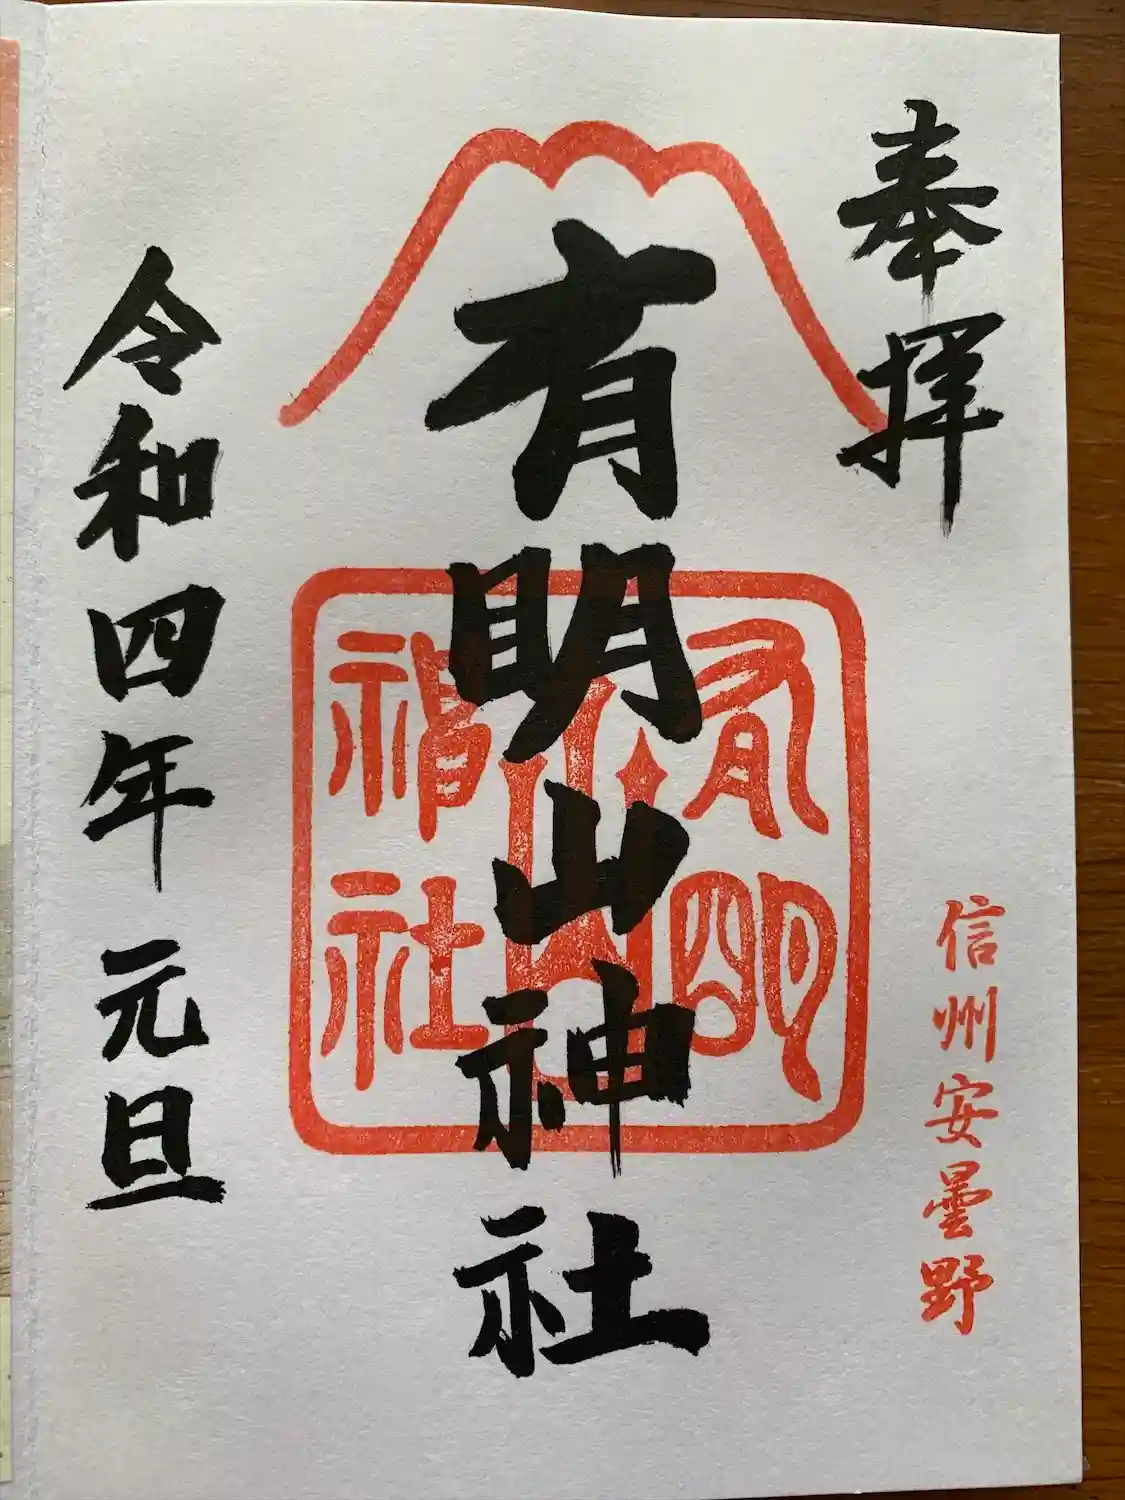 奉拝
信州安曇野
有明山神社
有明山神社
令和四年元旦